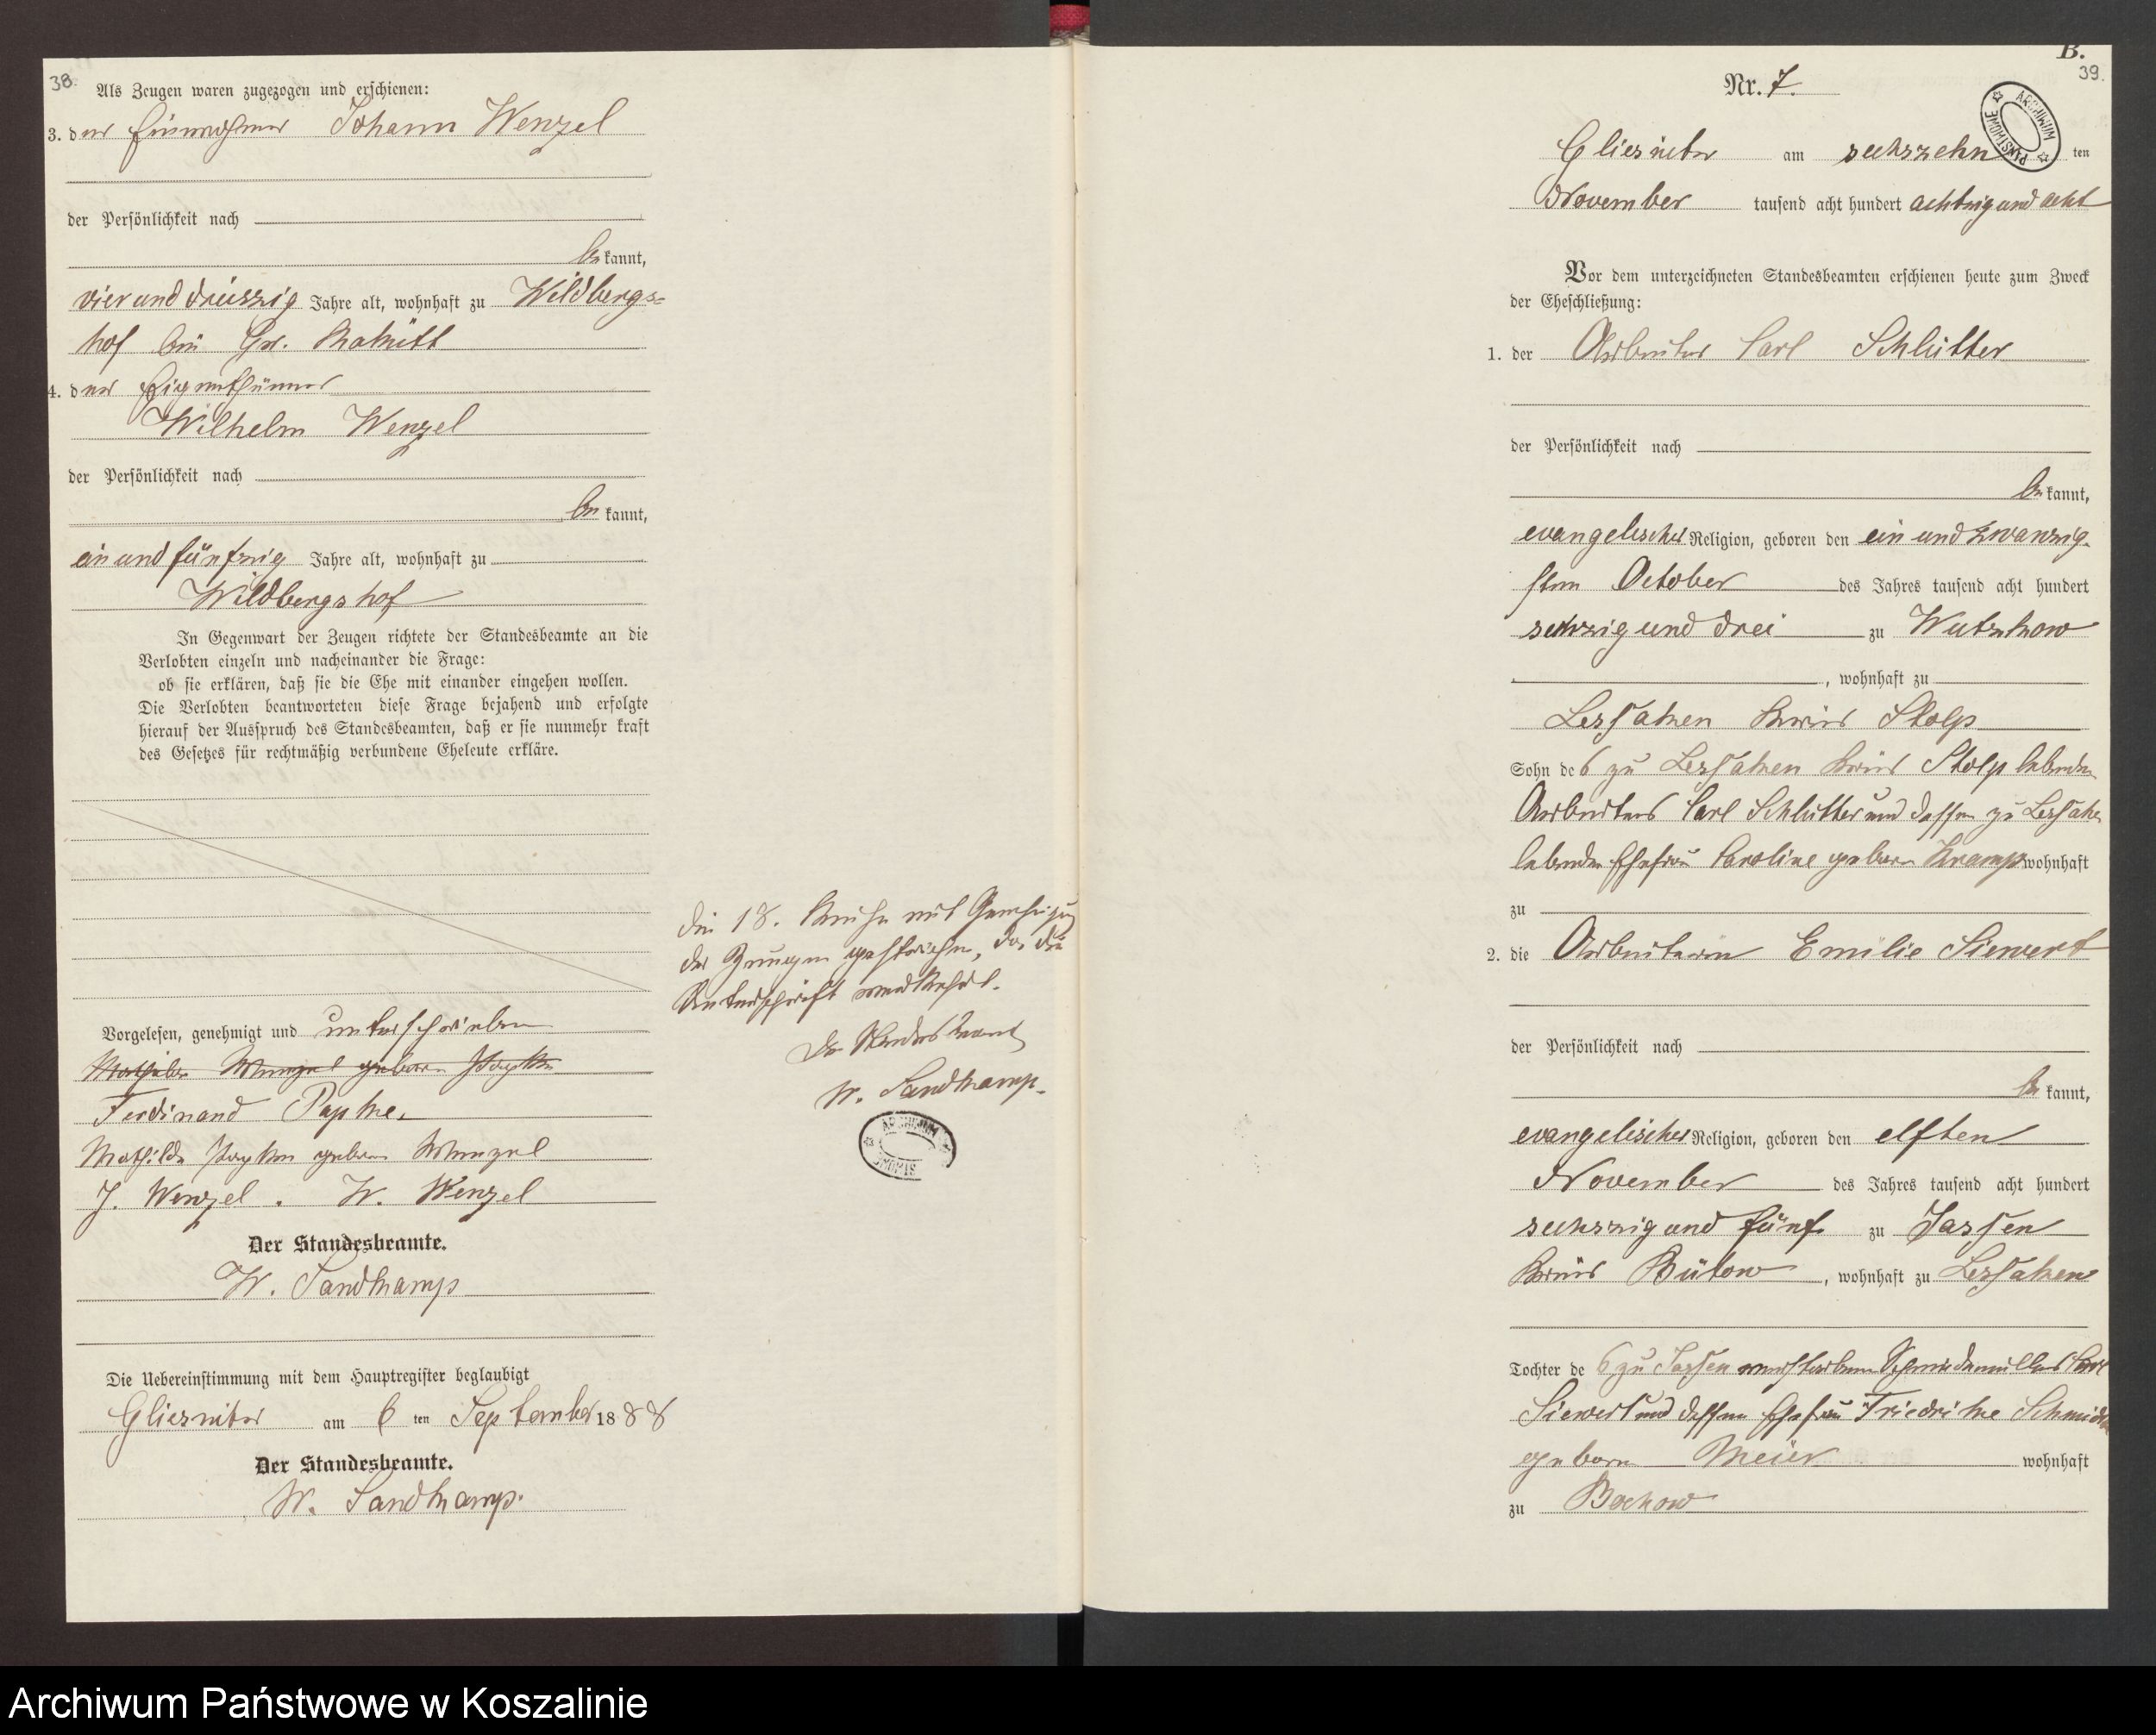 38.
Als Zeugen waren zugezogen und erschienen:
3. der Einwohner Johann Wenzel
der Persönlichkeit nach
be kannt,
vier und dreiszig Jahre alt, wohnhaft zu Wildbergs=
hof bei Gr.
4. der Eigenthümer
Wilhelm Wenzel
der Persönlichkeit nach
be kannt,
ein und fünfzig Jahre alt, wohnhaft zu
Wildbergshof
In Gegenwart der Zeugen richtete der Standesbeamte an die
Verlobten einzeln und nacheinander die Frage:
ob sie erklären, daß sie die Ehe mit einander eingehen wollen.
Die Verlobten beantworteten diese Frage bejahend und erfolgte
hierauf der Ausspruch des Standesbeamten, daß er sie nunmehr kraft
des Gesetzes für rechtmäßig verbundene Eheleute erkläre.
Vorgelesen, genehmigt und unterschrieben
Mathilde Wenzel geborn Papke
Ferdinand Papke.
Mathilde Papke geborn Wenzel
J. Wenzel. W. Wenzel
Der Standesbeamte.
W. Sandkamp
Die Uebereinstimmung mit dem Hauptregister beglaubigt
Gliesnitz am 6 ten September 18 88
Der Standesbeamte.
W. Sandkamp.
Die 18. Reihe mit Genehmigung
der Zeugen gestrichen, da die
Unterschrift verkehrt.
Der Standesbeamte
W. Sandkamp.
ARCHIWUM PAŃSTWOWE
B.
39.
Nr. 7.
ARCHIWUM PAŃSTWOWE
Gliesnitz am sechszehn ten
November tausend acht hundert achtzig und acht
Vor dem unterzeichneten Standesbeamten erschienen heute zum Zweck
der Eheschließung:
1. der Arbeiter Carl Schlütter
der Persönlichkeit nach
be kannt,
evangelischer Religion, geboren den ein und zwanzig-
sten October des Jahres tausend acht hundert
sechzig und drei zu Wutzkow
, wohnhaft zu
Lessaken Kreis Stolp
Sohn des zu Lessaken Kreis Stolp lebenden
Arbeiters Carl Schlütter und dessen zu Lessaken
lebenden Ehefrau Caroline geborn Kramp wohnhaft
zu
2. die Arbeiterin Emilie Siewert
der Persönlichkeit nach
be kannt,
evangelischer Religion, geboren den elften
November des Jahres tausend acht hundert
sechszig und fünf zu Jassen
Kreis Bütow, wohnhaft zu Lessaken
Tochter des zu Jassen verstorbenen Schneidemüllers Carl
Siewert und dessen Ehefrau Friedrike
geborn Meier wohnhaft
zu Bochow
Archiwum Państwowe w Koszalinie